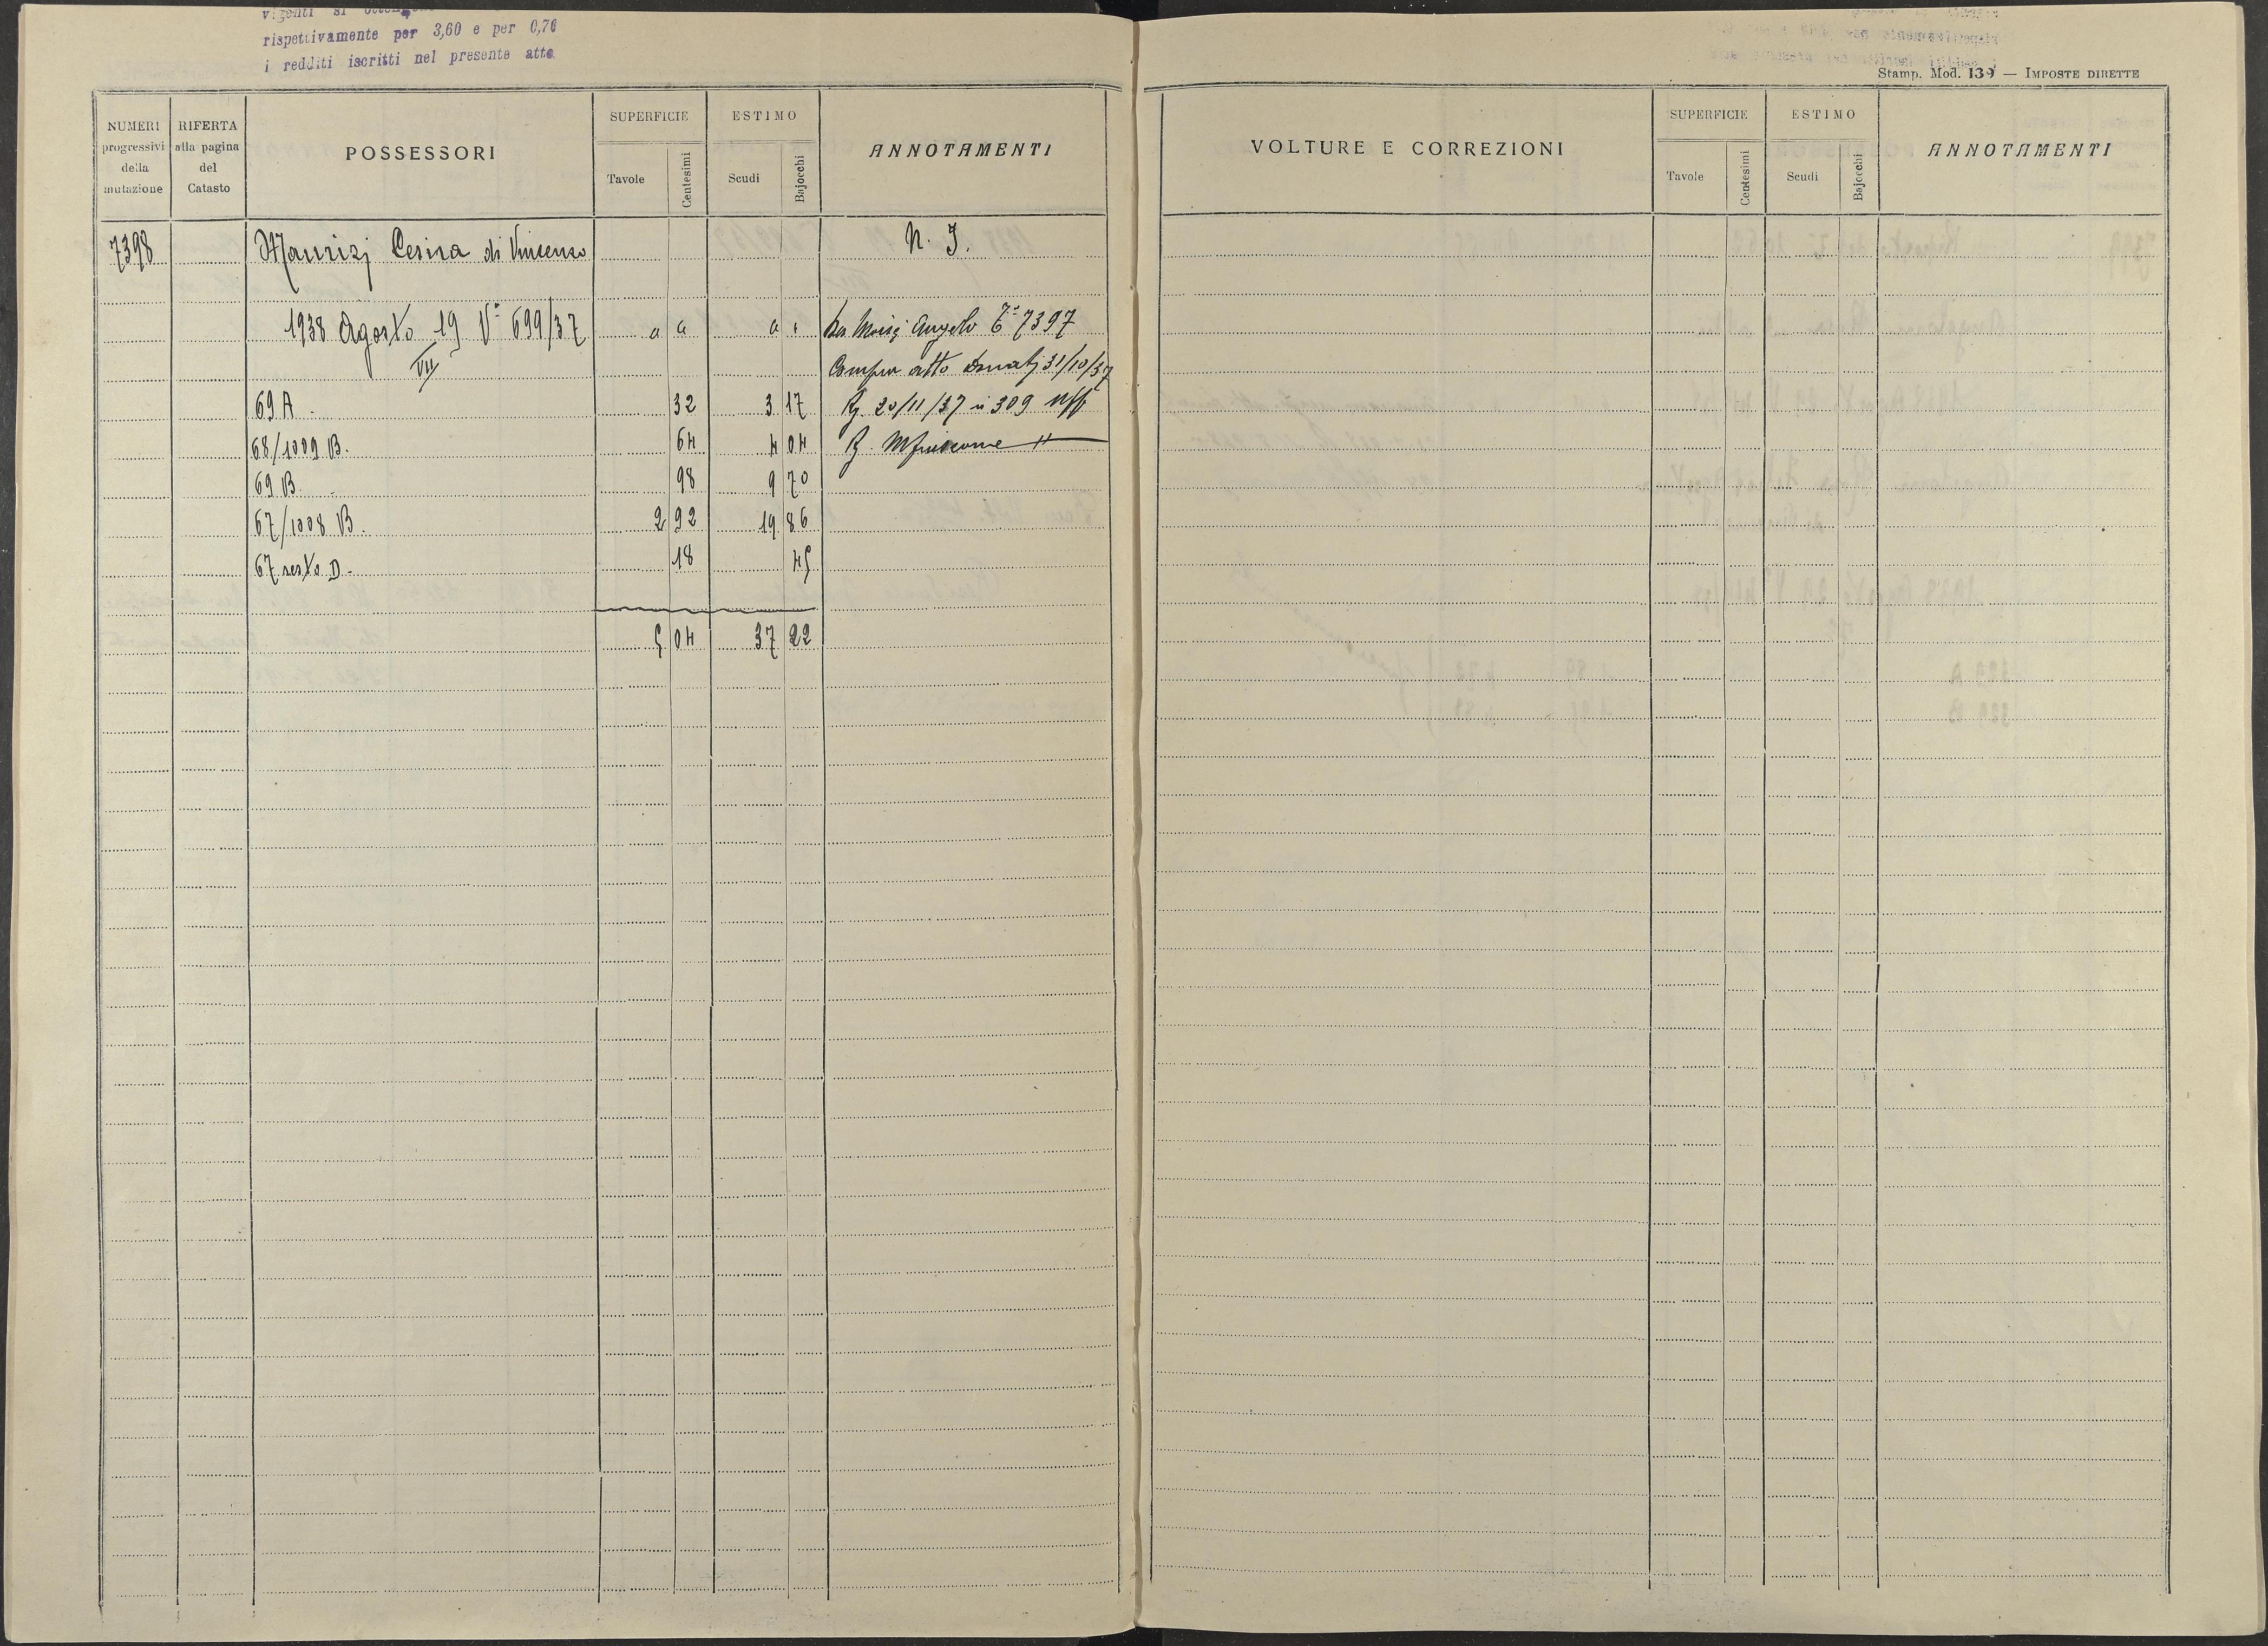 rispettivamente per 3,60 e per 0,70
i redditi iscritti nel presente atto
Stamp. Mod. 139 — IMPOSTE DIRETTE
NUMERI progressivi della mutazione
RIFERTA alla pagina del Catasto
POSSESSORI
SUPERFICIE
Tavole
Centesimi
ESTIMO
Scudi
Bajocchi
ANNOTAMENTI
VOLTURE E CORREZIONI
SUPERFICIE
Tavole
Centesimi
ESTIMO
Scudi
Bajocchi
ANNOTAMENTI
7398 Maurizj Cesira di Vincenzo N. I.
1938 Agosto 19 V° 699/37 a a a Angelo 7397
VII
atto 31/10/37
69 A 32 3 17 20/11/37 n 309
68/1009 B. 64 4 04
69 B 98 9 70
67/1008 B. 2 92 19 86
67 resto D - 18 45
5 04 37 22